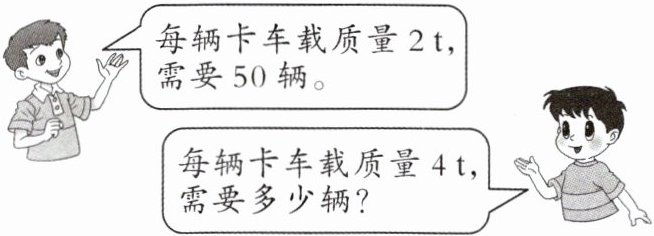 每辆卡车载质量2t，
需要50辆。
每辆卡车载质量4t，
需要多少辆？